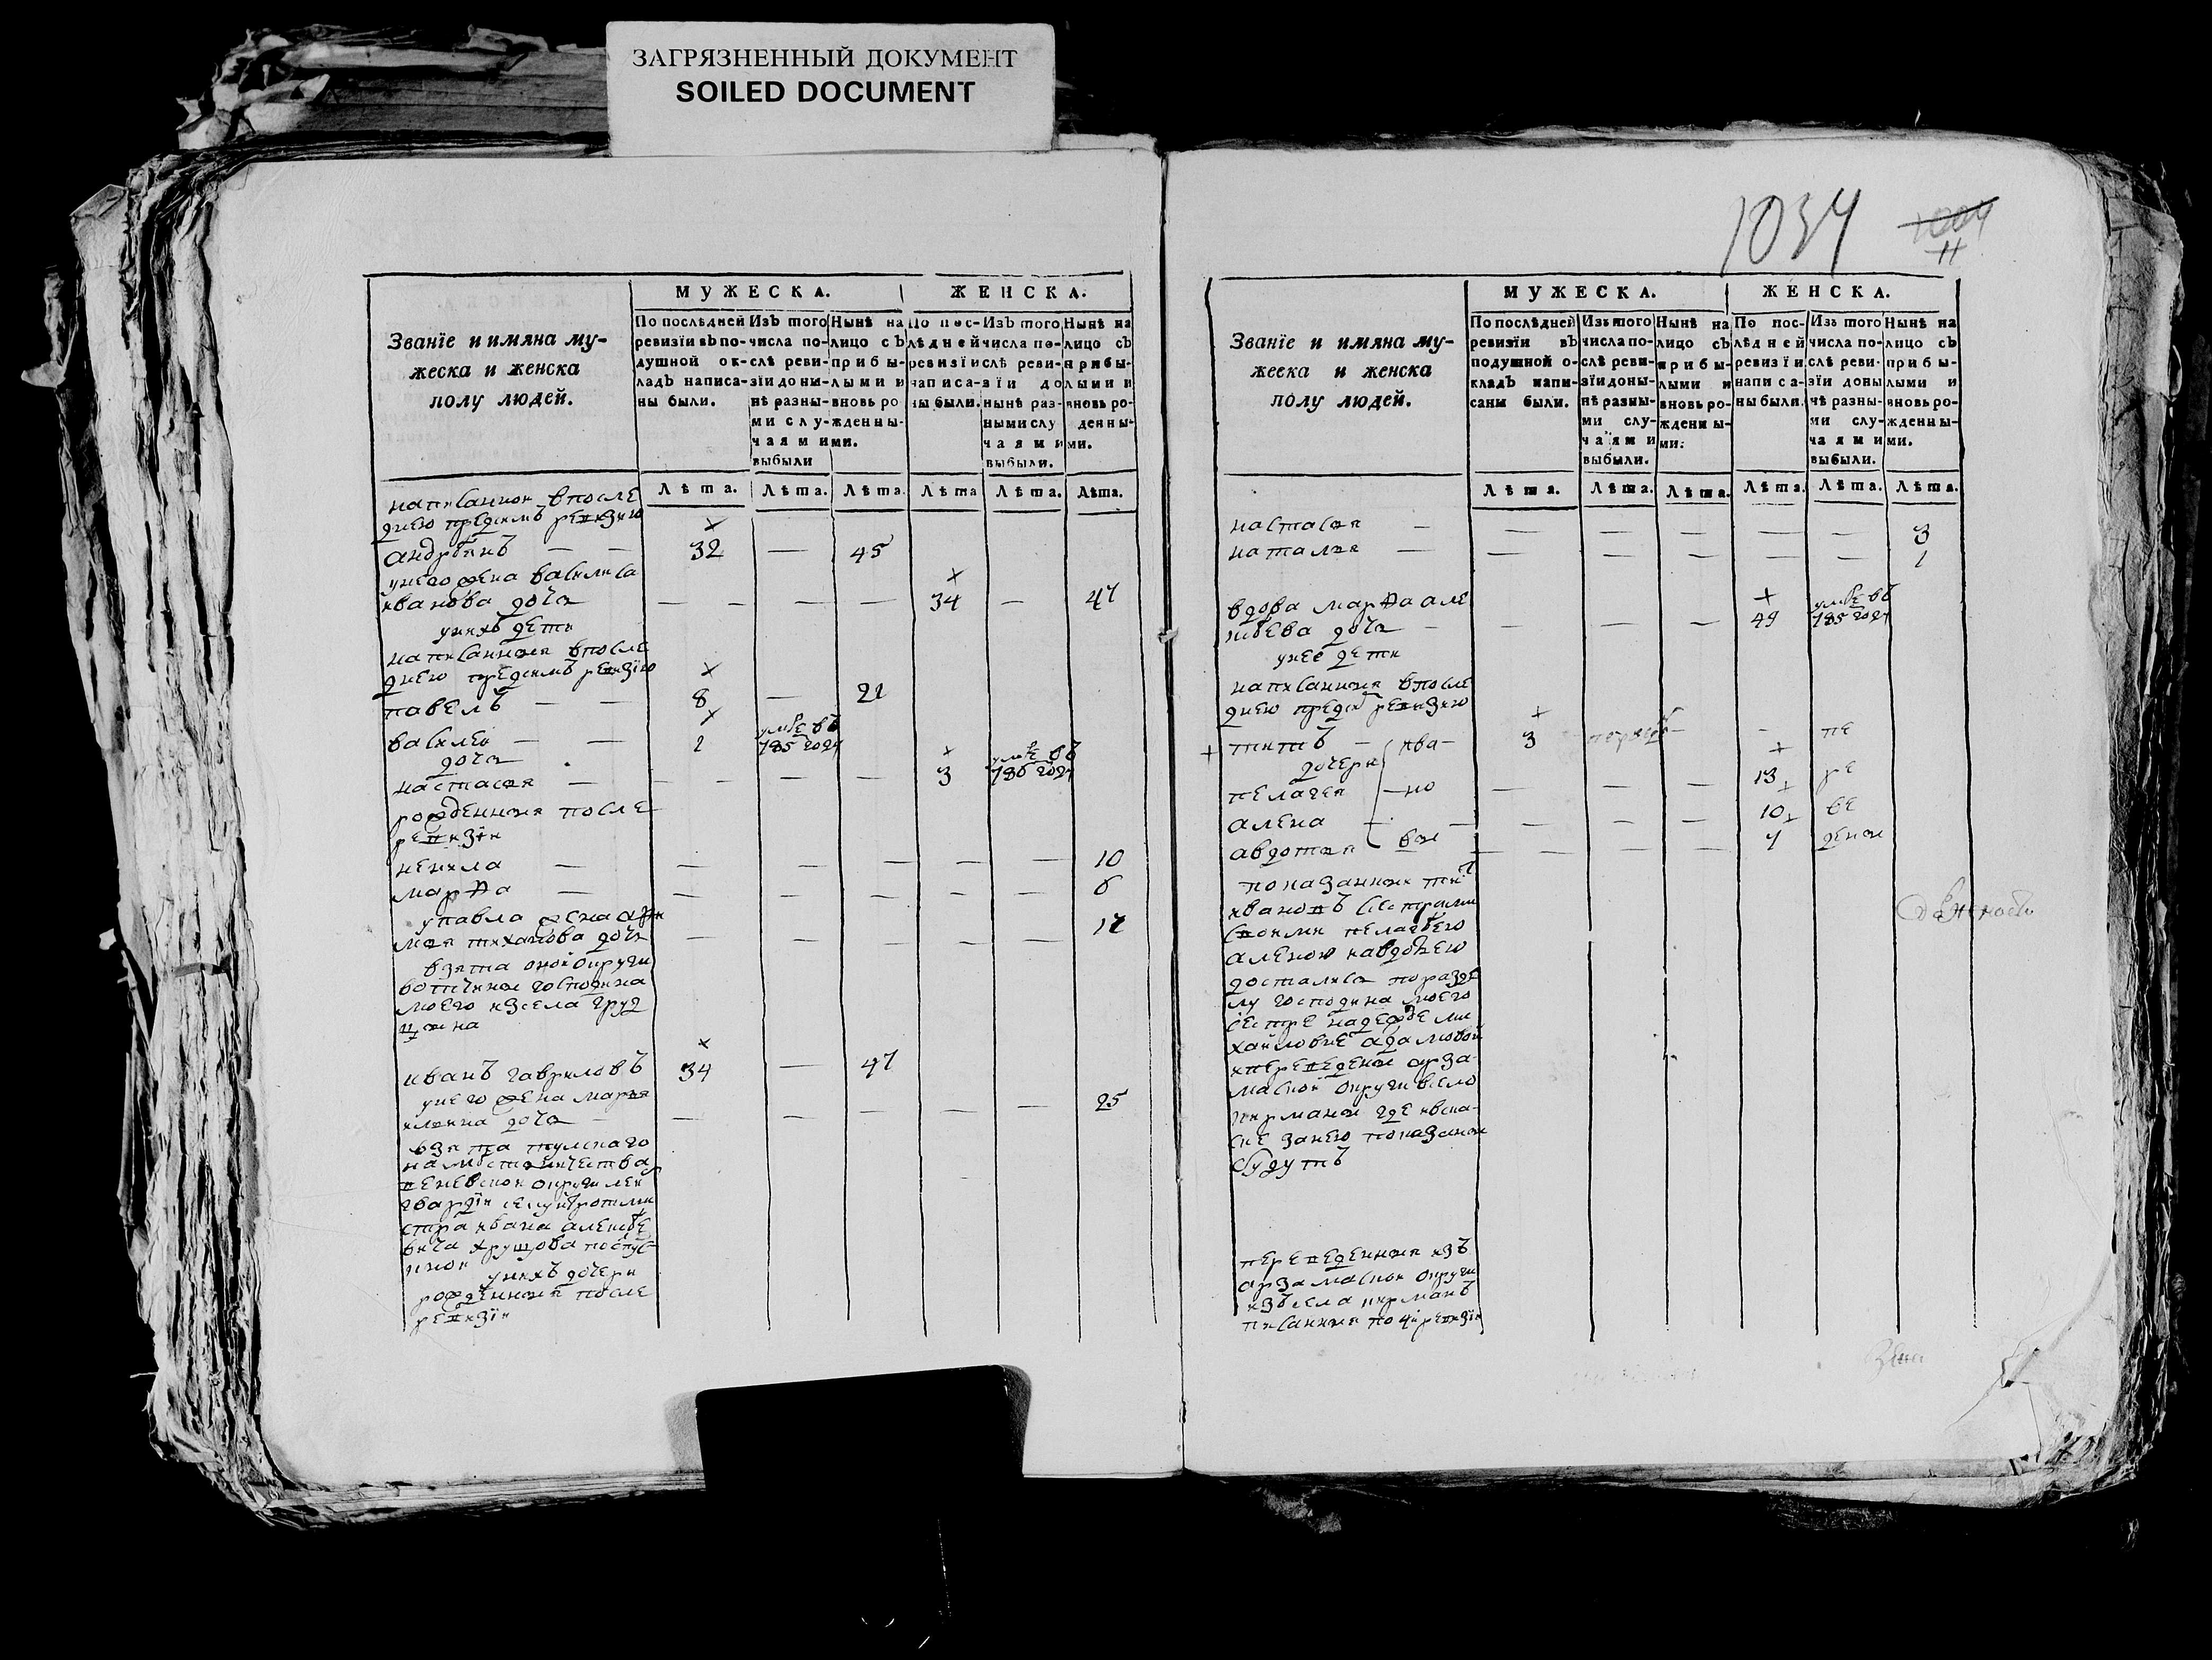 ЗАГРЯЗНЕННЫЙ ДОКУМЕНТ
SOILED DOCUMENT
1034
1004
11
Званїе и имяна му-
жеска и женска
полу людей.
МУЖЕСКА.
ЖЕНСКА.
По послѣдней
ревизїи въ по-
душной ок-
ладъ написа-
ны были.
Изъ того
числа по-
слѣ реви-
зїи до ны-
нѣ разны-
ми слу-
чаями
выбыли
Нынѣ на
лицо съ
прибы-
лыми и
вновь ро
жденны-
ми.
По пос-
лѣдней
ревизїи
написа-
ны были.
Изъ того
числа по-
слѣ реви-
зїи до
нынѣ раз-
ными слу
чаями
выбыли.
Нынѣ на
лицо съ
прибы-
лыми и
вновь ро-
денны-
ми.
Лѣта. Лѣта. Лѣта. Лѣта Лѣта. Лѣта.
написанной впосле
днею предсимъ ревизию
андрѣянъ — — 32 — 45
унего жена василиса
иванова дочь — — — — 34 — 47
унихъ дети
написанныя впосле
днею предсимъ ревизїю
павелъ — — 8 — 22
василеи — — 2 умре въ 785 году
дочь
настасья — — — — — 3 умре въ 786 году
рожденныя после
ревизїи
ненила — — — — — — 10
марфа — — — — — — 6
упавла жена
мья тихонова дочь — — — — — — 17
взята оной округи
вотчины господина
моего изсела груд
цына
иванъ гавриловъ 34 — 47
унего жена марья
ильина дочь — — — — — — 25
взята тулскаго
наместничества
веневской округи леи
гвардїи секундротми
стра ивана алексѣе
вича хрущова поспус
кной
унихъ дочери
рожденныя после
ревизїи
Званїе и имяна му-
жеска и женска
полу людей.
МУЖЕСКА.
ЖЕНСКА.
По послѣдней
ревизїи въ
подушной о-
кладъ напи-
саны были.
Изъ того
числа по-
слѣ реви-
зїи до ны-
нѣ разны-
ми слу-
чаями
выбыли.
Нынѣ на
лицо съ
прибы-
лыми и
вновь ро-
жденны-
ми.
По пос-
лѣдней
ревизїи
написа-
ны были.
Изъ того
числа по-
слѣ реви-
зїи до ны
нѣ разны-
ми слу-
чаями
выбыли.
Нынѣ на
лицо съ
прибы-
лыми и
вновь ро-
жденны-
ми.
Лѣта. Лѣта. Лѣта. Лѣта. Лѣта. Лѣта.
настасья — — — — — — 3
наталья — — — — — — 1
вдова марфа але
ксѣева дочь — — — — 49 умре въ 785 году
унее дети
написанныя впосле
днею предси ревизию
титъ — ива- 3 — пе
дочери
пелагея — но — — — 13 ре
алена — — — — 10 ве
авдотья вы — — — 4 дены
показанныя титъ
ивановъ сестрами
своими пелагѣею
аленою иавдотьею
достались поразде
лу господина моего
сестре надежде ми
хаиловне адамовой
ипереведены арза-
маской округи всело
кирманы где ивска-
ске занею показаны
будутъ
переведенныя изъ
арзамаской округи
изъсела кирманъ
писанныя по 4й ревизїи